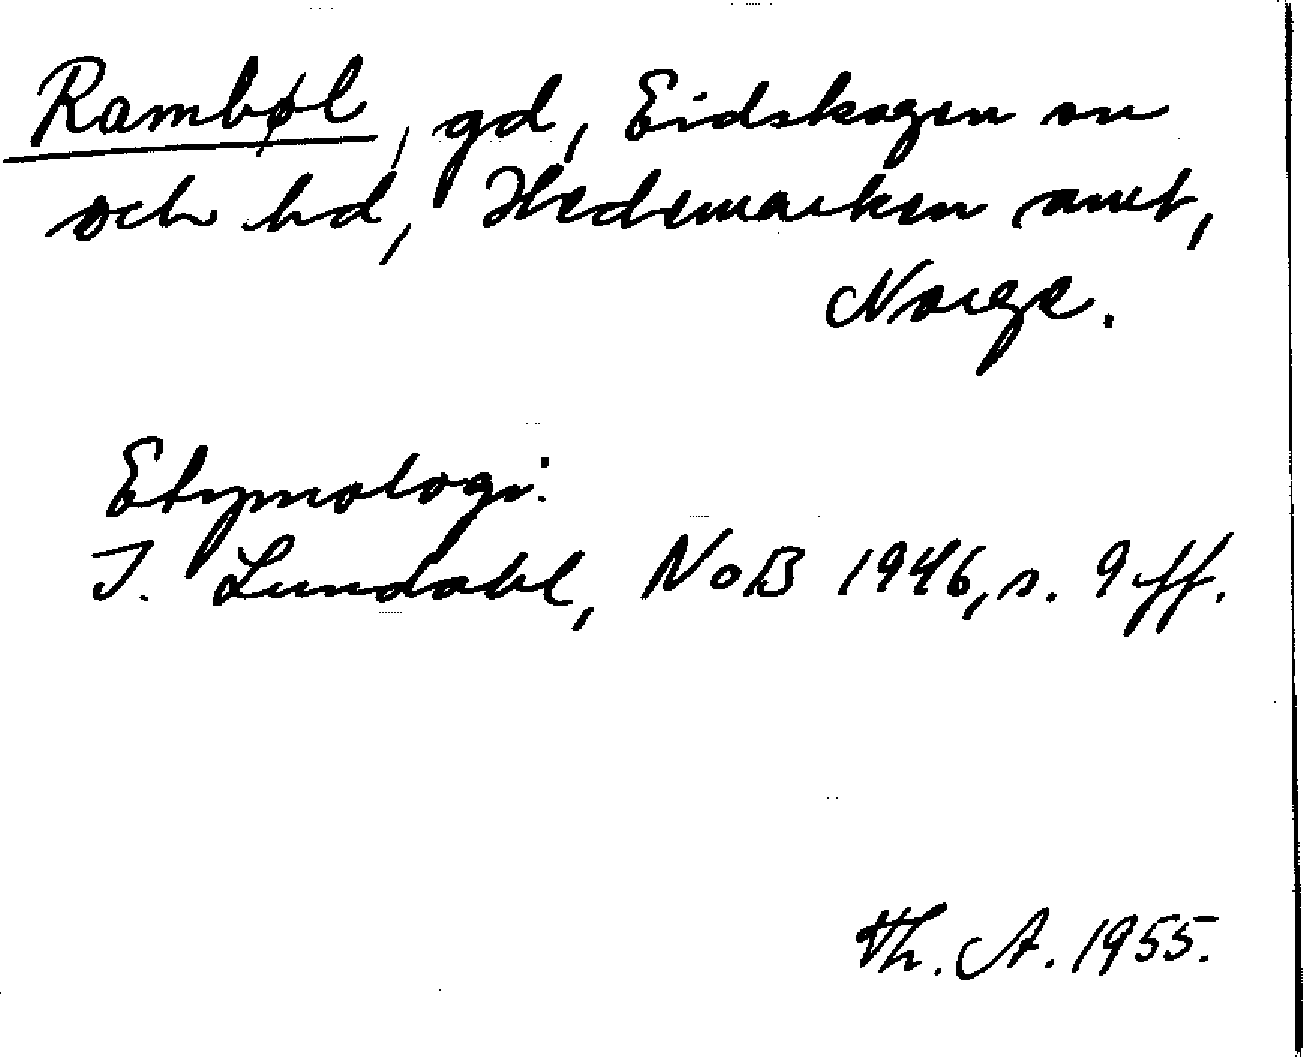 Rambøl, gd, Eidskogen sn
och hd, Hedemarken amt,
Norge.
Etymologi:
I. Lundahl, NoB 1946, s. 9 ff.
Th. A. 1955.